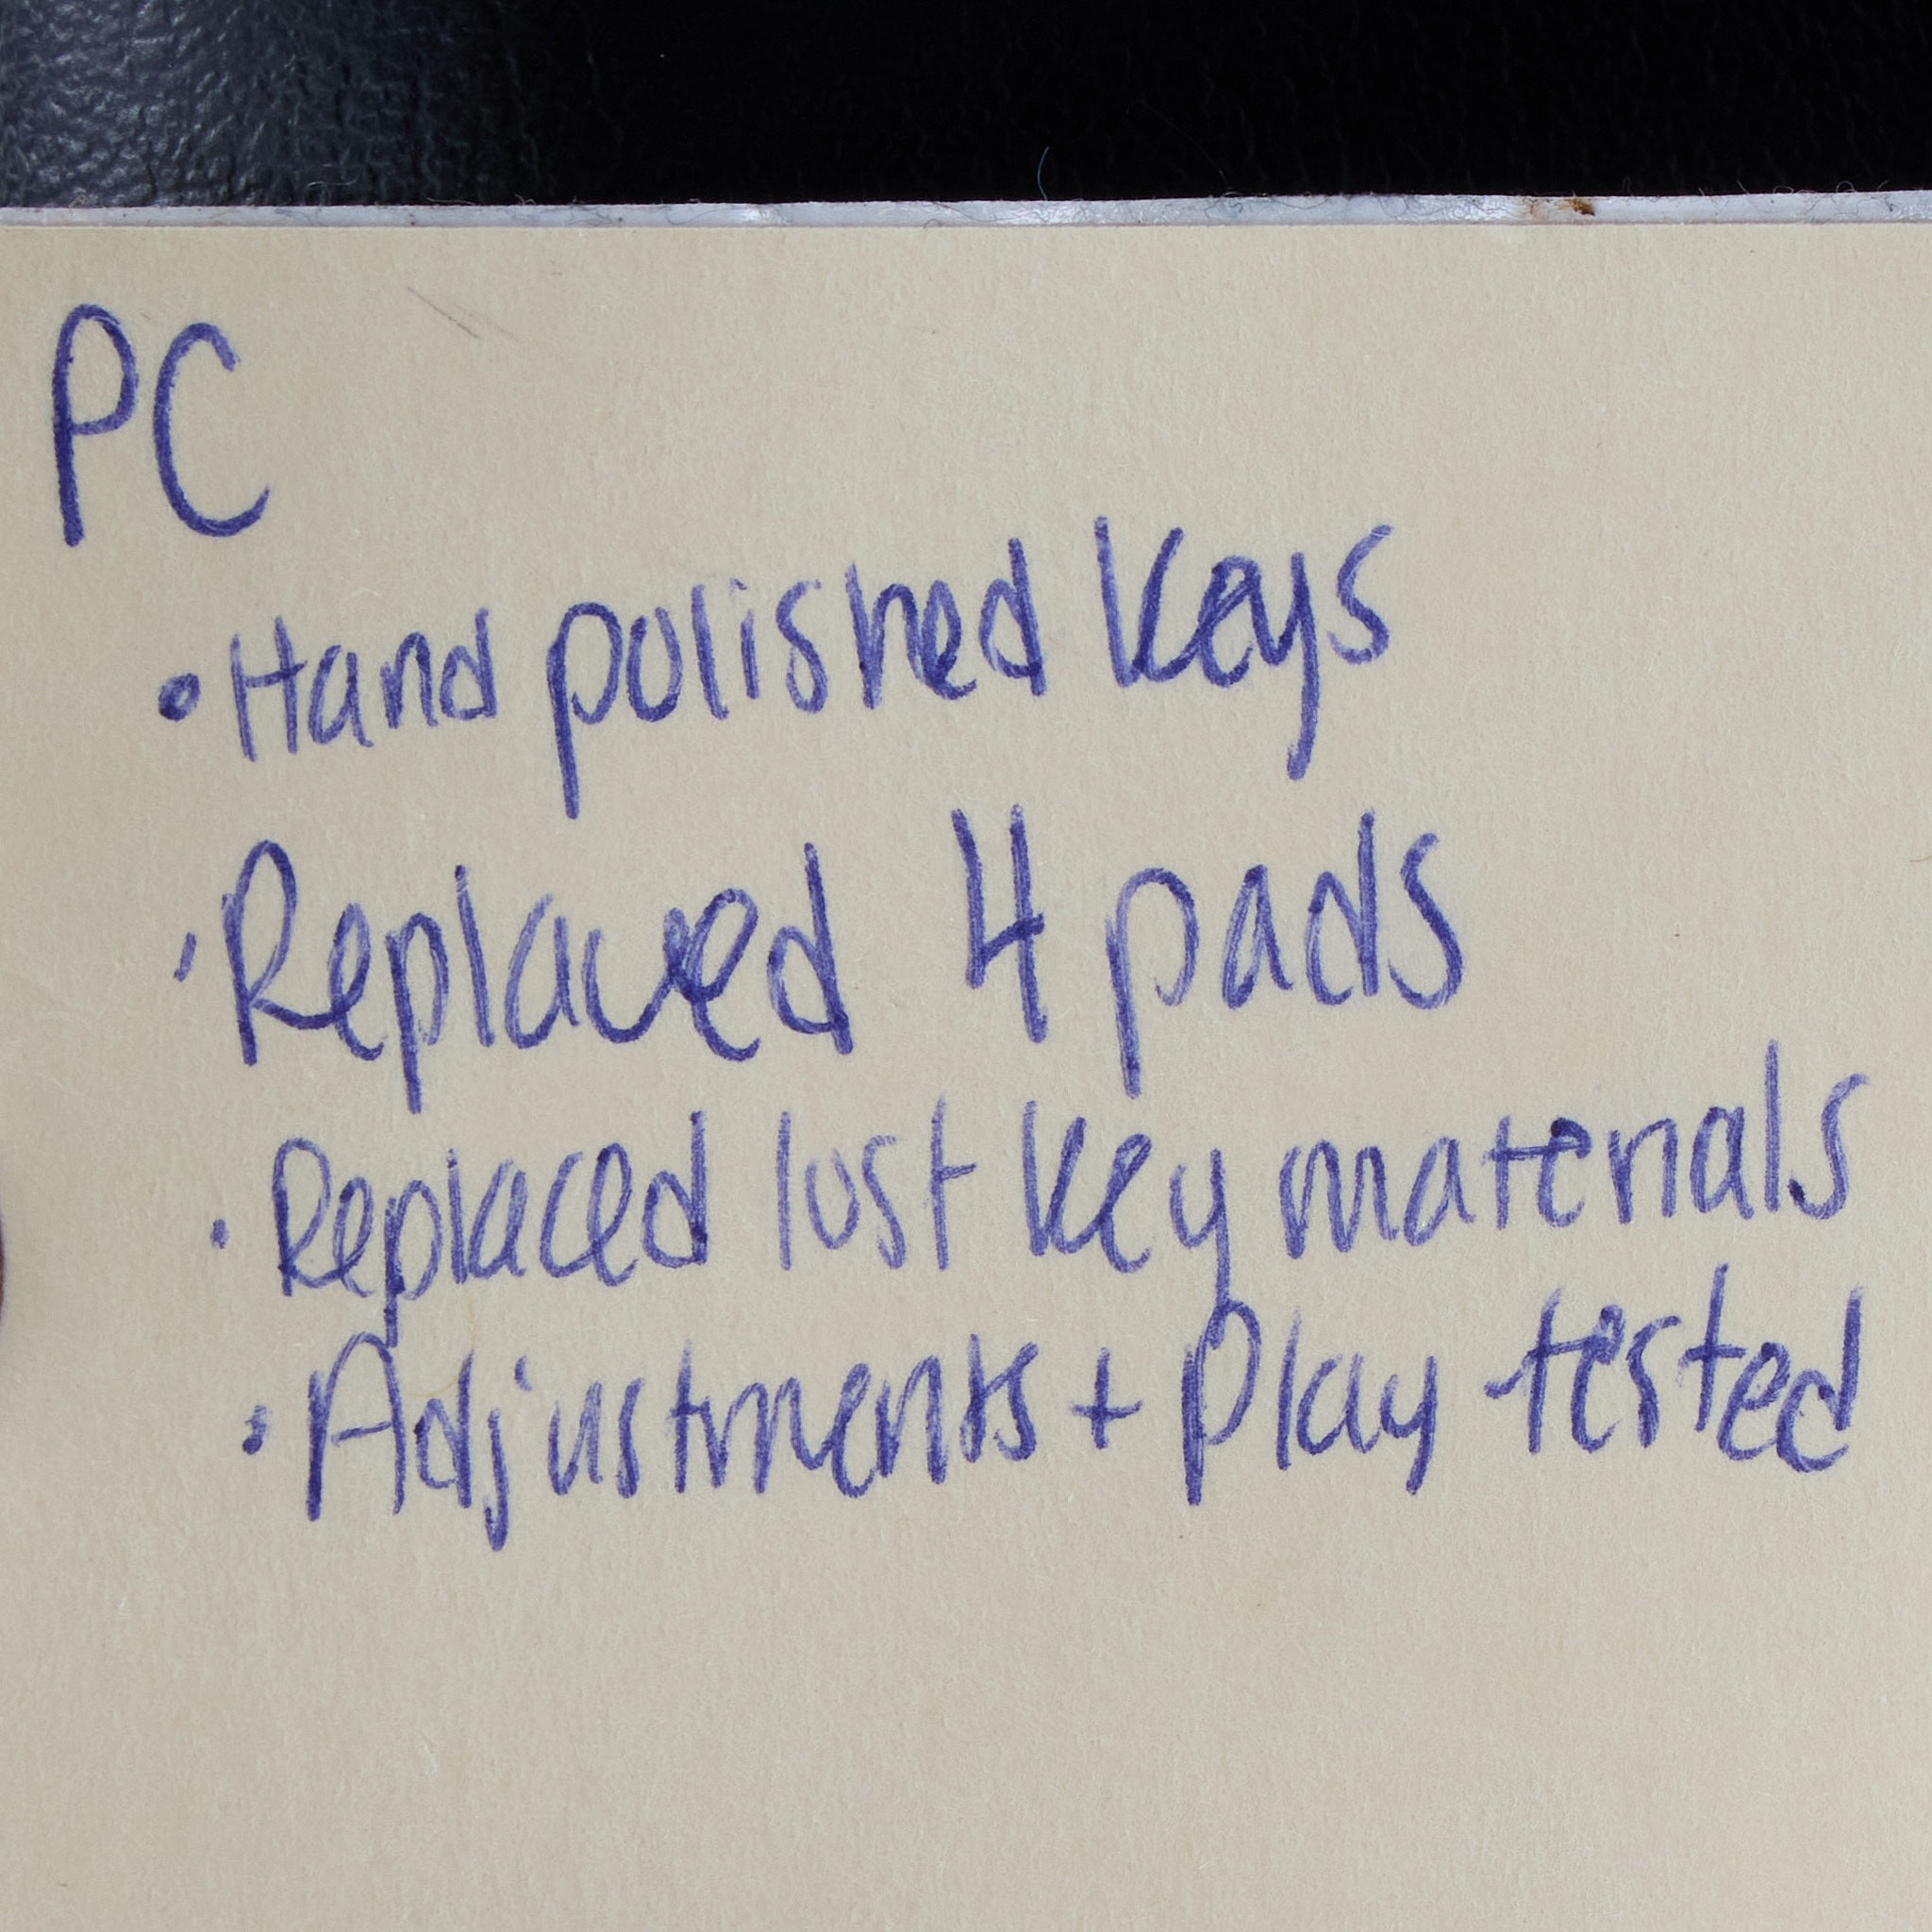 PC
• Hand polished keys
• Replaced 4 pads
• Replaced lost key materials
• Adjustments + Play tested